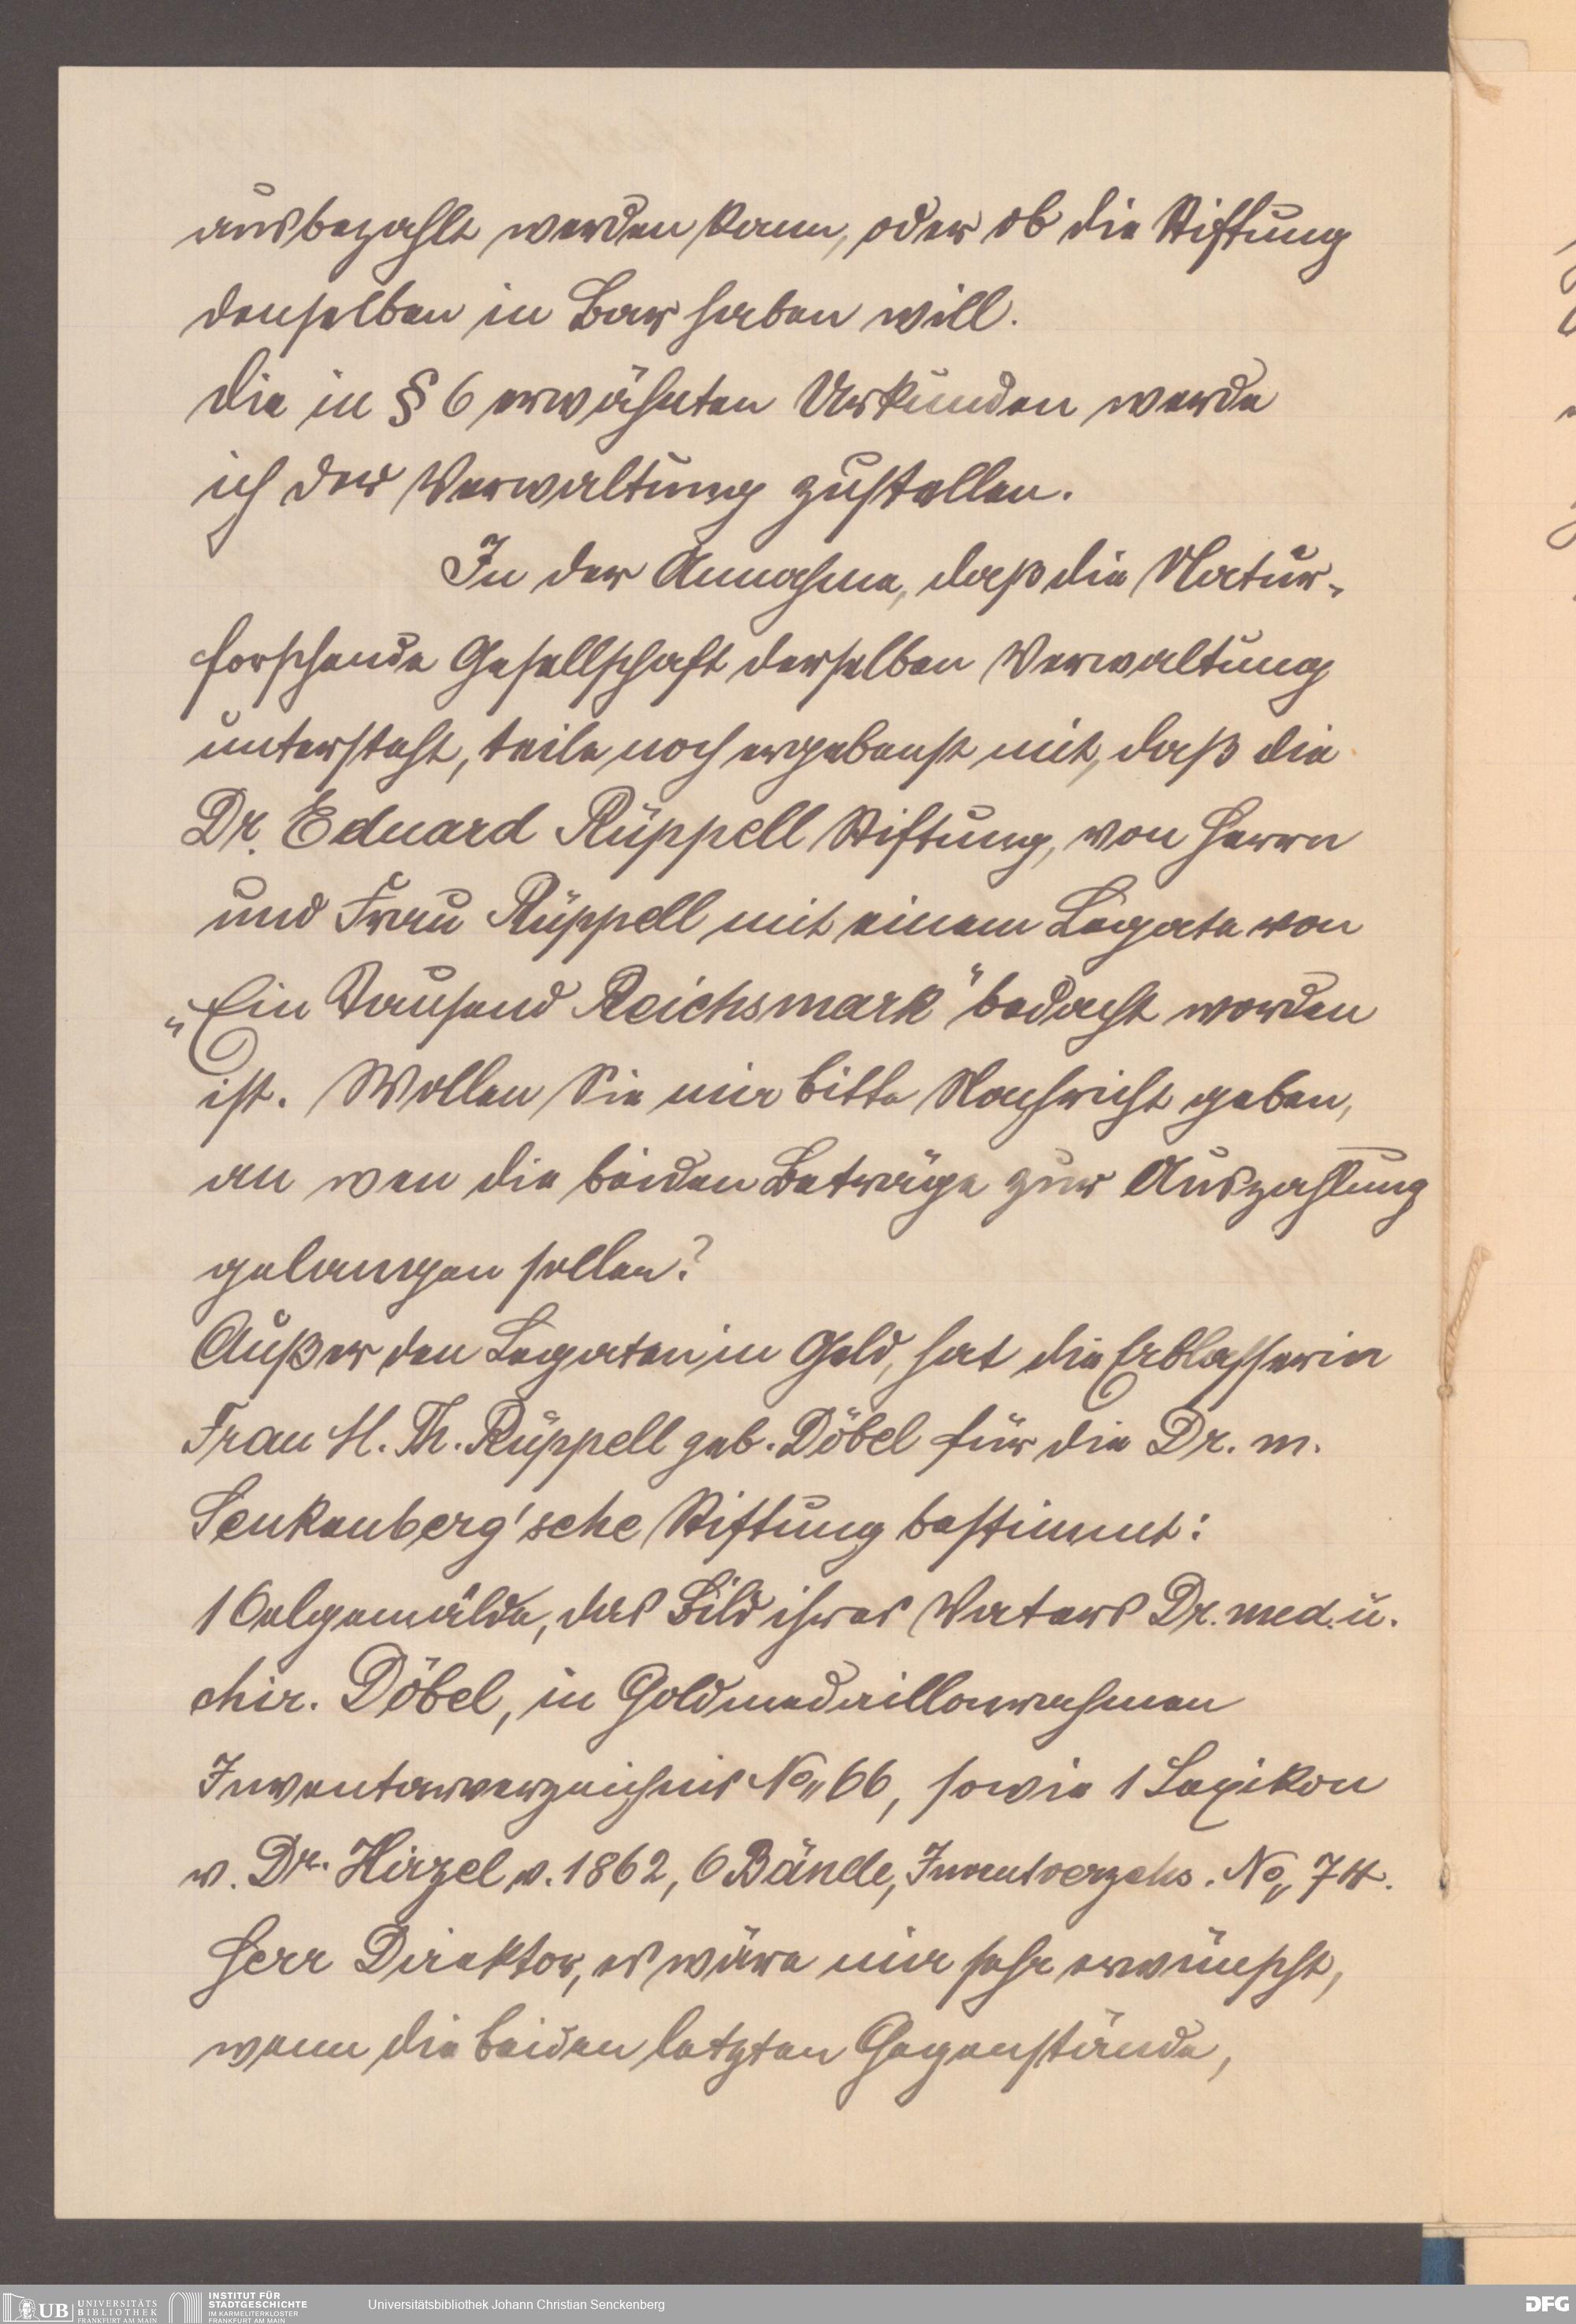 ausbezahlt werden kann, oder ob die Stiftung
denselben in Bar haben will.
Die in § 6 erwähnten Urkunden werde
ich der Verwaltung zustellen.
In der Annahme, daß die Natur-
forschende Gesellschaft derselben Verwaltung
untersteht, teile noch ergebenst mit, daß die
Dr. Eduard Rüppell Stiftung, von Herrn
und Frau Rüppell mit einem Legate von
„Ein Tausend Reichsmark" bedacht worden
ist. Wollen Sie mir bitte Nachricht geben,
an wen die beiden Beträge zur Auszahlung
gelangen sollen?
Außer den Legaten in Geld, hat die Erblasserin
Frau H. Th. Rüppell geb. Döbel für die Dr. m.
Senkenberg'sche Stiftung bestimmt:
1 Oelgemälde, das Bild ihres Vaters Dr. med. u.
chir. Döbel, in Goldmedaillonrahmen
Inventarverzeichnis No„ 66, sowie 1 Lexikon
v. Dr. Hirzel v. 1862, 6 Bände, Inventverzchs. No„ 74.
Herr Direktor, es wäre mir sehr erwünscht,
wenn die beiden letzten Gegenstände,
UB UNIVERSITÄTS
BIBLIOTHEK
FRANKFURT AM MAIN
INSTITUT FÜR
STADTGESCHICHTE
IM KARMELITERKLOSTER
FRANKFURT AM MAIN
Universitätsbibliothek Johann Christian Senckenberg
DFG